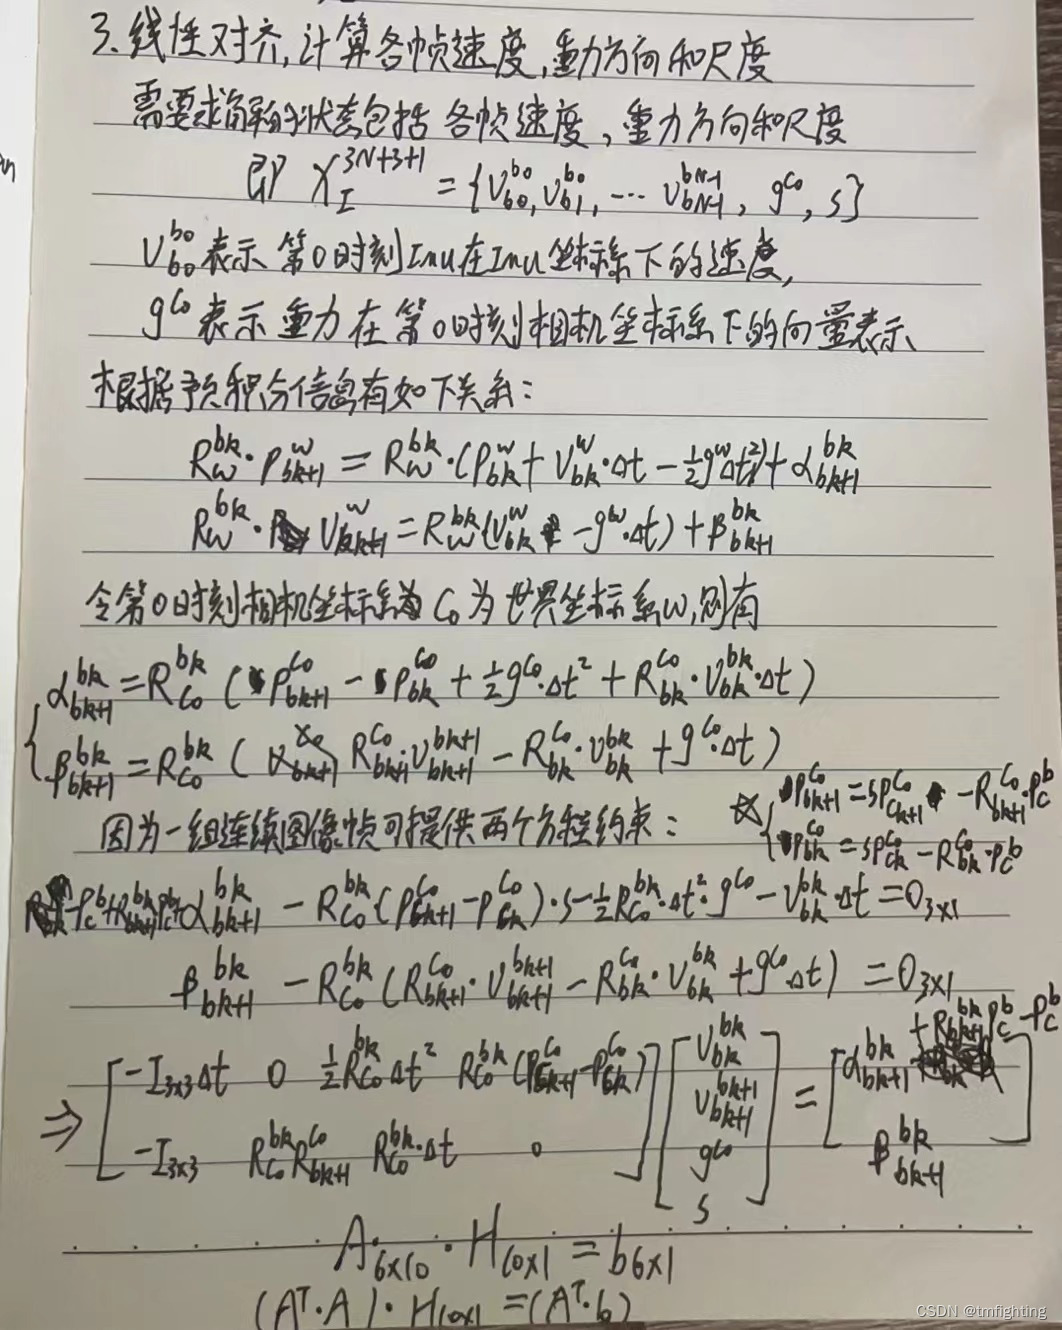 3. 线性对齐,计算各帧速度,重力方向和尺度
需要求解的状态包括 各帧速度,重力方向和尺度
即 X_I^{3N+3+1} = {v_{b0}^{b0}, v_{b1}^{b0}, … v_{bN-1}^{bN-1}, g^{c0}, s}
v_{b0}^{b0} 表示 第0时刻Imu在Imu坐标系下的速度,
g^{c0} 表示 重力在第0时刻相机坐标系下的向量表示
根据预积分信息有如下关系:
R_w^{bk}·P_{bk+1}^w = R_w^{bk}·(P_{bk}^w + v_{bk}^w·Δt - ½g^wΔt²) + α_{bk+1}^{bk}
R_w^{bk}· v_{bk+1}^w = R_w^{bk}(v_{bk}^w - g^w·Δt) + β_{bk+1}^{bk}
令第0时刻相机坐标系为 C0 为世界坐标系w,则有
α_{bk+1}^{bk} = R_{c0}^{bk} (P_{bk+1}^{c0} - P_{bk}^{c0} + ½g^{c0}·Δt² + R_{bk}^{c0}·v_{bk}^{bk}·Δt)
β_{bk+1}^{bk} = R_{c0}^{bk} ( R_{bk+1}^{c0}·v_{bk+1}^{bk+1} - R_{bk}^{c0}·v_{bk}^{bk} + g^{c0}·Δt)
☆{ P_{bk+1}^{c0} = sP_{ck+1}^{c0} - R_{bk+1}^{c0}·P_c^b
P_{bk}^{c0} = sP_{ck}^{c0} - R_{bk}^{c0}·P_c^b
因为一组连续图像帧可提供两个方程约束:
-P_c^b + R_{bk+1}^{bk}P_c^b + α_{bk+1}^{bk} - R_{c0}^{bk}(P_{ck+1}^{c0} - P_{ck}^{c0})·s - ½R_{c0}^{bk}·Δt²·g^{c0} - v_{bk}^{bk}·Δt = 0_{3×1}
β_{bk+1}^{bk} - R_{c0}^{bk}(R_{bk+1}^{c0}·v_{bk+1}^{bk+1} - R_{bk}^{c0}·v_{bk}^{bk} + g^{c0}·Δt) = 0_{3×1}
⇒ [ -I_{3×3}Δt 0 ½R_{c0}^{bk}Δt² R_{c0}^{bk}(P_{ck+1}^{c0} - P_{ck}^{c0})
-I_{3×3} R_{c0}^{bk}R_{bk+1}^{c0} R_{c0}^{bk}·Δt 0 ]
[ v_{bk}^{bk}
v_{bk+1}^{bk+1}
g^{c0}
s ]
= [ α_{bk+1}^{bk} + R_{bk+1}^{bk}P_c^b - P_c^b
β_{bk+1}^{bk} ]
A_{6×10} · H_{10×1} = b_{6×1}
(A^T·A)·H_{10×1} = (A^T·b)
CSDN @tmfighting